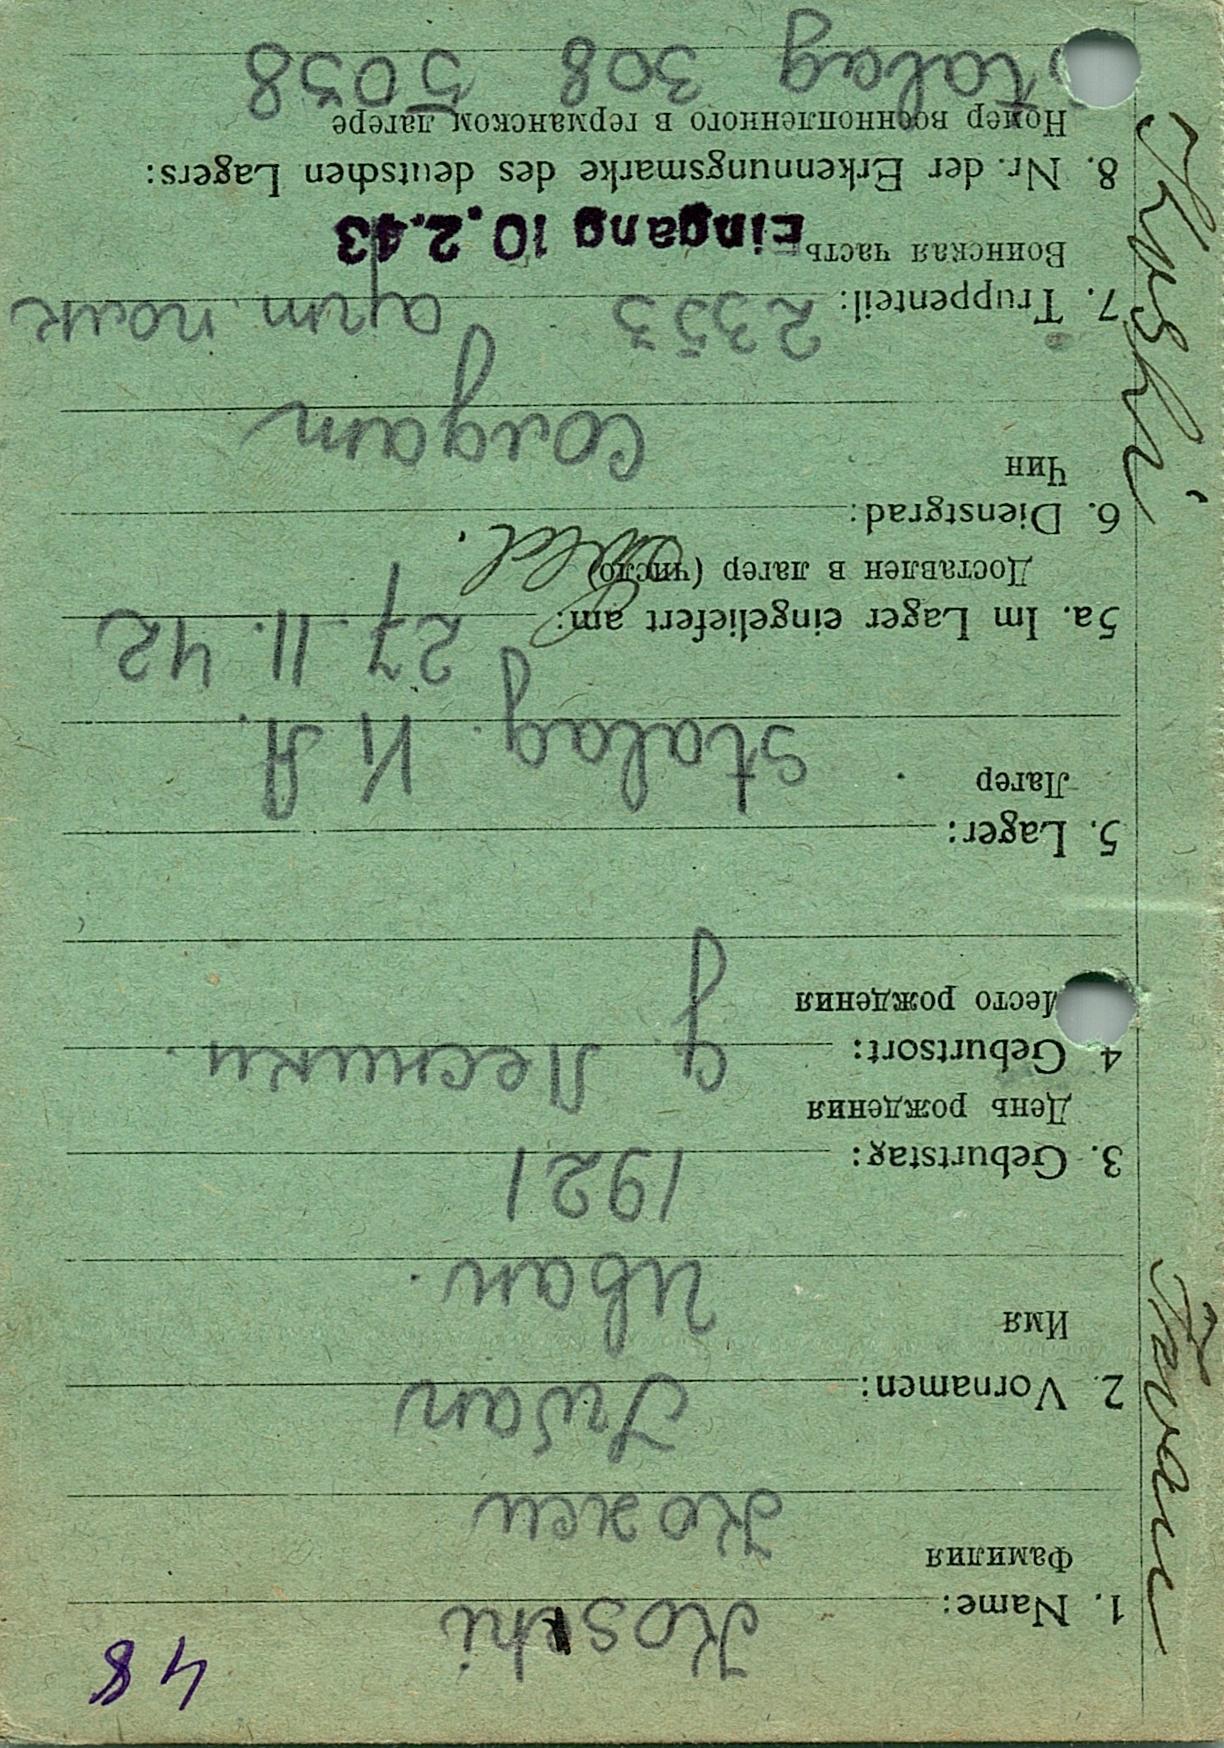 48
1. Name: Koschi
Фамилия
Кожеи
2. Vornamen: Iwan
Имя
Иван.
3. Geburtstag: 1921
День рождения
4 Geburtsort: д Лесники.
Место рождения
5. Lager:
Лагер
Stalag. VI A.
5a. Im Lager eingeliefert am: 27. 11. 42
Доставлен в лагер (число)
Sold.
6. Dienstgrad:
Чин
Солдат
7. Truppenteil: 2353 арт. полк
Воинская часть
Eingang 10.2.43
8. Nr. der Erkennungsmarke des deutschen Lagers:
Номер военнопленного в германском лагере
Stalag 308 5038
Iwan